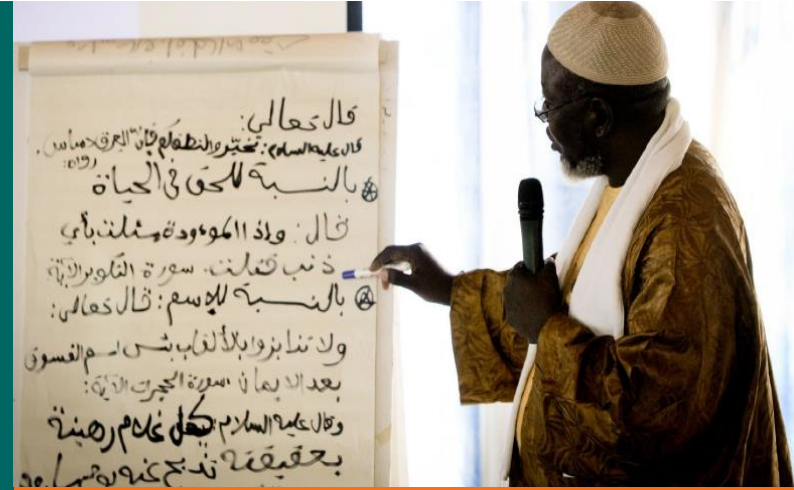 قال تعالى:
قال عليه السلام: تخيّروا لنطفكم فإنّ العرق دساس. رواه:
بالنسبة للحق في الحياة
قال: وإذا الموءودة سئلت بأي
ذنب قتلت. سورة التكوير الآية
بالنسبة للإسم: قال تعالى:
ولا تنابزوا بالألقاب بئس اسم الفسوق
بعد الايمان سورة الحجرات الآية:
وقال عليه السلام: كل غلام رهينة
بعقيقته تذبح عنه يوم